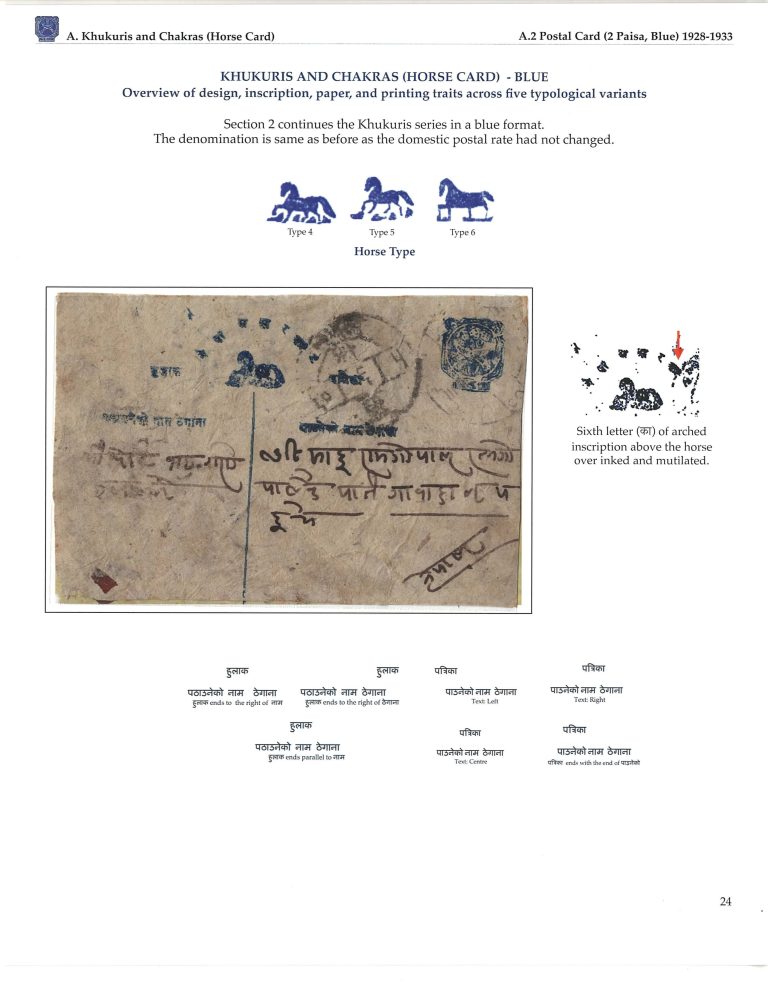 A. Khukuris and Chakras (Horse Card)
A.2 Postal Card (2 Paisa, Blue) 1928-1933
KHUKURIS AND CHAKRAS (HORSE CARD) - BLUE
Overview of design, inscription, paper, and printing traits across five typological variants
Section 2 continues the Khukuris series in a blue format.
The denomination is same as before as the domestic postal rate had not changed.
Type 4
Type 5
Type 6
Horse Type
हुलाक
पत्रिका
पठाउनेको नाम ठेगाना
पाउनेको नाम ठेगाना
Sixth letter (का) of arched
inscription above the horse
over inked and mutilated.
हुलाक
पठाउनेको नाम ठेगाना
हुलाक ends to the right of नाम
हुलाक
पठाउनेको नाम ठेगाना
हुलाक ends to the right of ठेगाना
पत्रिका
पाउनेको नाम ठेगाना
Text: Left
पत्रिका
पाउनेको नाम ठेगाना
Text: Right
हुलाक
पठाउनेको नाम ठेगाना
हुलाक ends parallel to नाम
पत्रिका
पाउनेको नाम ठेगाना
Text: Centre
पत्रिका
पाउनेको नाम ठेगाना
पत्रिका ends with the end of पाउनेको
24